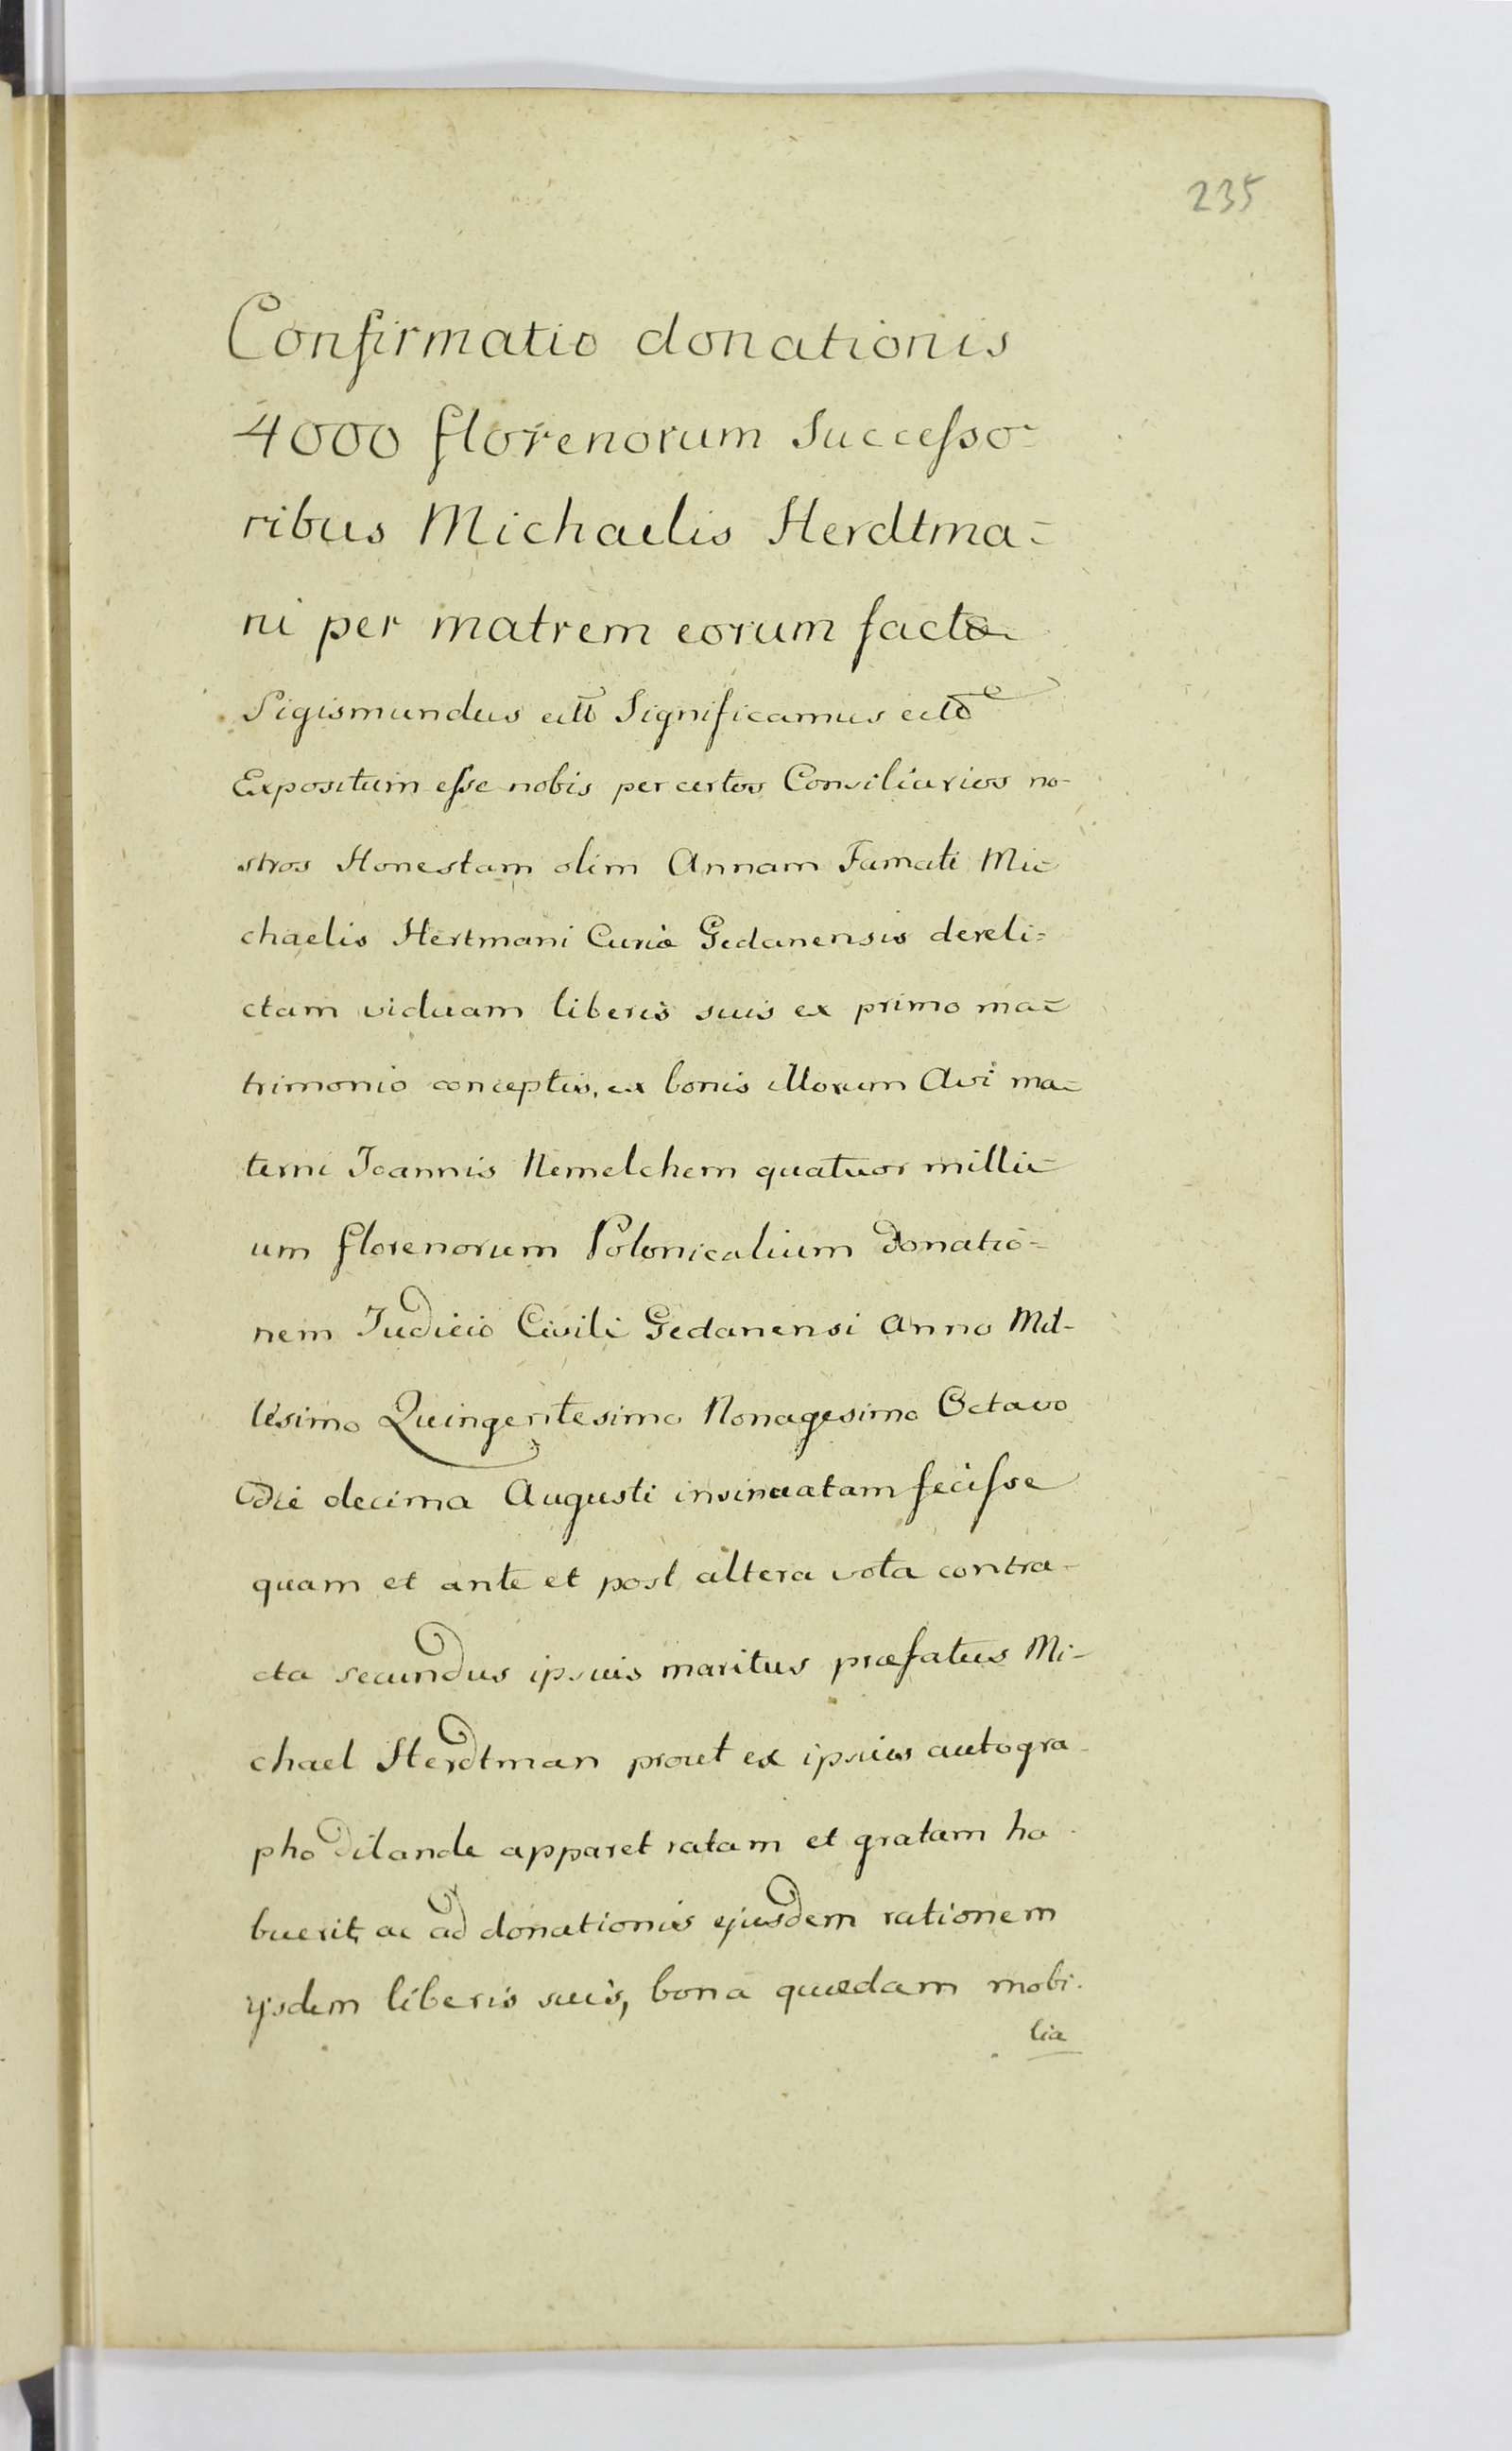 235
Confirmatio donationis
4000 florenorum Successo-
ribus Michaelis Herdtma=
ni per matrem eorum facta
Sigismundus ett Significamus ett
Expositum esse nobis per certos Consiliarios no-
stros Honestam olim Annam Famati Mi=
chaelis Hertmani Curiæ Gedanensis dereli=
ctam viduam liberis suis ex primo ma=
trimonio conceptis, ex bonis illorum Avi ma=
terni Joannis Nemelchem quatuor milli=
um florenorum Polonicalium donatio=
nem Judicio Civili Gedanensi Anno Mil-
lesimo Quingentesimo Nonagesimo Octavo
die decima Augusti insinuatam fecisse
quam et ante et post altera vota contra-
cta secundus ipsius maritus præfatus Mi-
chael Herdtman prout ex ipsius autogra-
pho dilande apparet ratam et gratam ha-
buerit, ac ad donationis ejusdem rationem
ijsdem liberis suis, bona quædam mobi-
lia